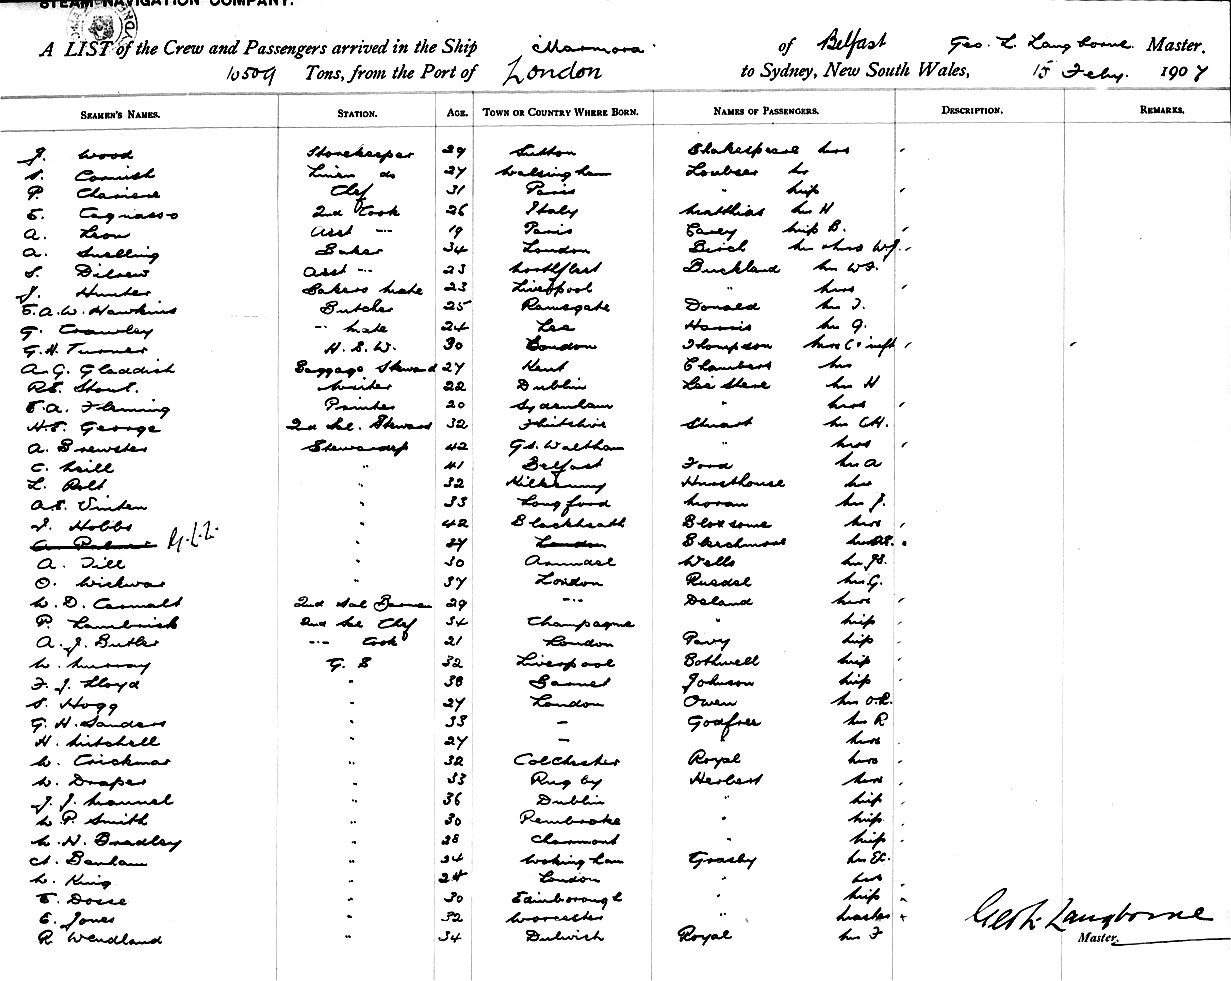 STEAM NAVIGATION COMPANY.
A LIST of the Crew and Passengers arrived in the Ship Marmora of Belfast Geo. L. Langborne Master.
10509 Tons, from the Port of London to Sydney, New South Wales, 15 Feby. 1907
SEAMEN'S NAMES. STATION. AGE. TOWN OR COUNTRY WHERE BORN. NAMES OF PASSENGERS. DESCRIPTION. REMARKS.
J. Wood Storekeeper 29 Sutton Shakespeare Mrs
S. Cornish Linen do 27 Walsingham Mr
P. 31 Paris " Miss
E. Cagnasso 2nd Cook 26 Italy Matthias Mr H
A. Leon Asst 19 Paris Carey Miss B.
A. Snelling Baker 34 London Birch Mr & Mrs W.J.
S. Asst 23 Northfleet Buckland Mr W.
J. Hunter Bakers Mate 23 Liverpool " Mrs
E.A.W. Hawkins Butcher 25 Ramsgate Donald Mr
G. Crawley " Mate 24 Lee Harris Mr G.
G.H. Turner H.S.W. 30 London Thompson Mrs C & inft
A.G. Gladdish Baggage Steward 27 Kent Chambers Mr
R.E. Stout Writer 22 Dublin Mr H
E.A. Fleming Printer 20 Sydenham " Mrs
H.E. George 2nd Sal. Steward 32 Stuart Mr C.H.
A. Brewster Stewardess 42 Gt. Waltham Mrs
C. Neill " 41 Belfast Ford Mr A
L. Rolt " 32 Kilkenny Hursthouse Mr
A.E. Vinten " 33 Longford Moran Mr J.
J. Hobbs " 42 Blackheath Bloxsome Mrs
A. Palmer " 37 London Mr
A. Till " 30 Arundel Wells Mr
O. Wickwar " 37 London Mr G.
W. D. 2nd Sal 29 " Deland Mrs
P. 2nd Sal Chef 34 Champagne " Miss
A. J. Butler " Cook 21 London Pavy Miss
W. Murray G. S 32 Liverpool Bothwell Miss
F. J. Lloyd " 38 Barnet Johnson Miss
S. Hogg " 27 London Owen Mr O.R.
G. H. Sanders " 33 — Godfree Mr R
H. Mitchell " 27 — " Mrs
W. Crickmar " 32 Colchester Royal Mrs
W. Draper " 33 Rugby Herbert Mrs
J. J. " 36 Dublin " Miss
W. P. Smith " 30 Pembroke " Miss
W. H. Bradley " 28 " Miss
A. Benham " 34 Wokingham Grasby Mr
W. King " 24 London " Mrs
E. " 30 " Miss
E. Jones " 32 Worcester " Master
R Wendland " 34 Dulwich Royal Mr F
Geo L. Langborne
Master.